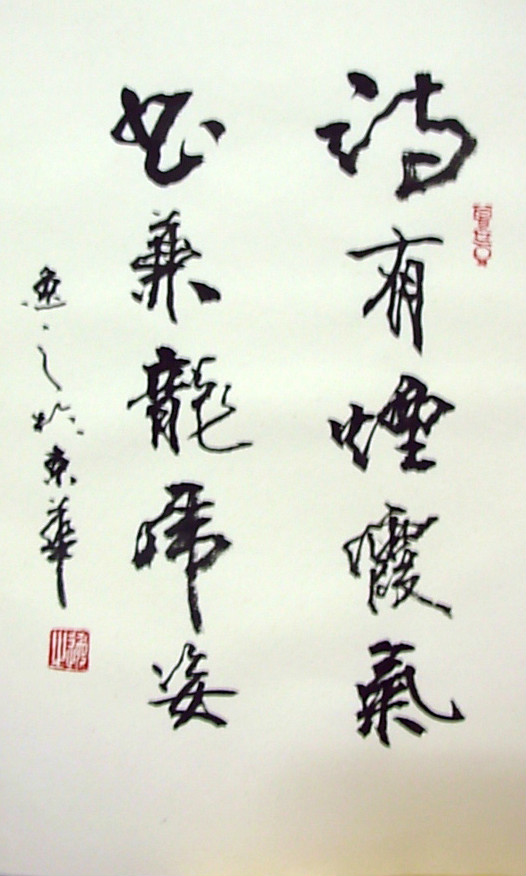 詩有煙霞氣
書兼龍虎姿
魚之於東華